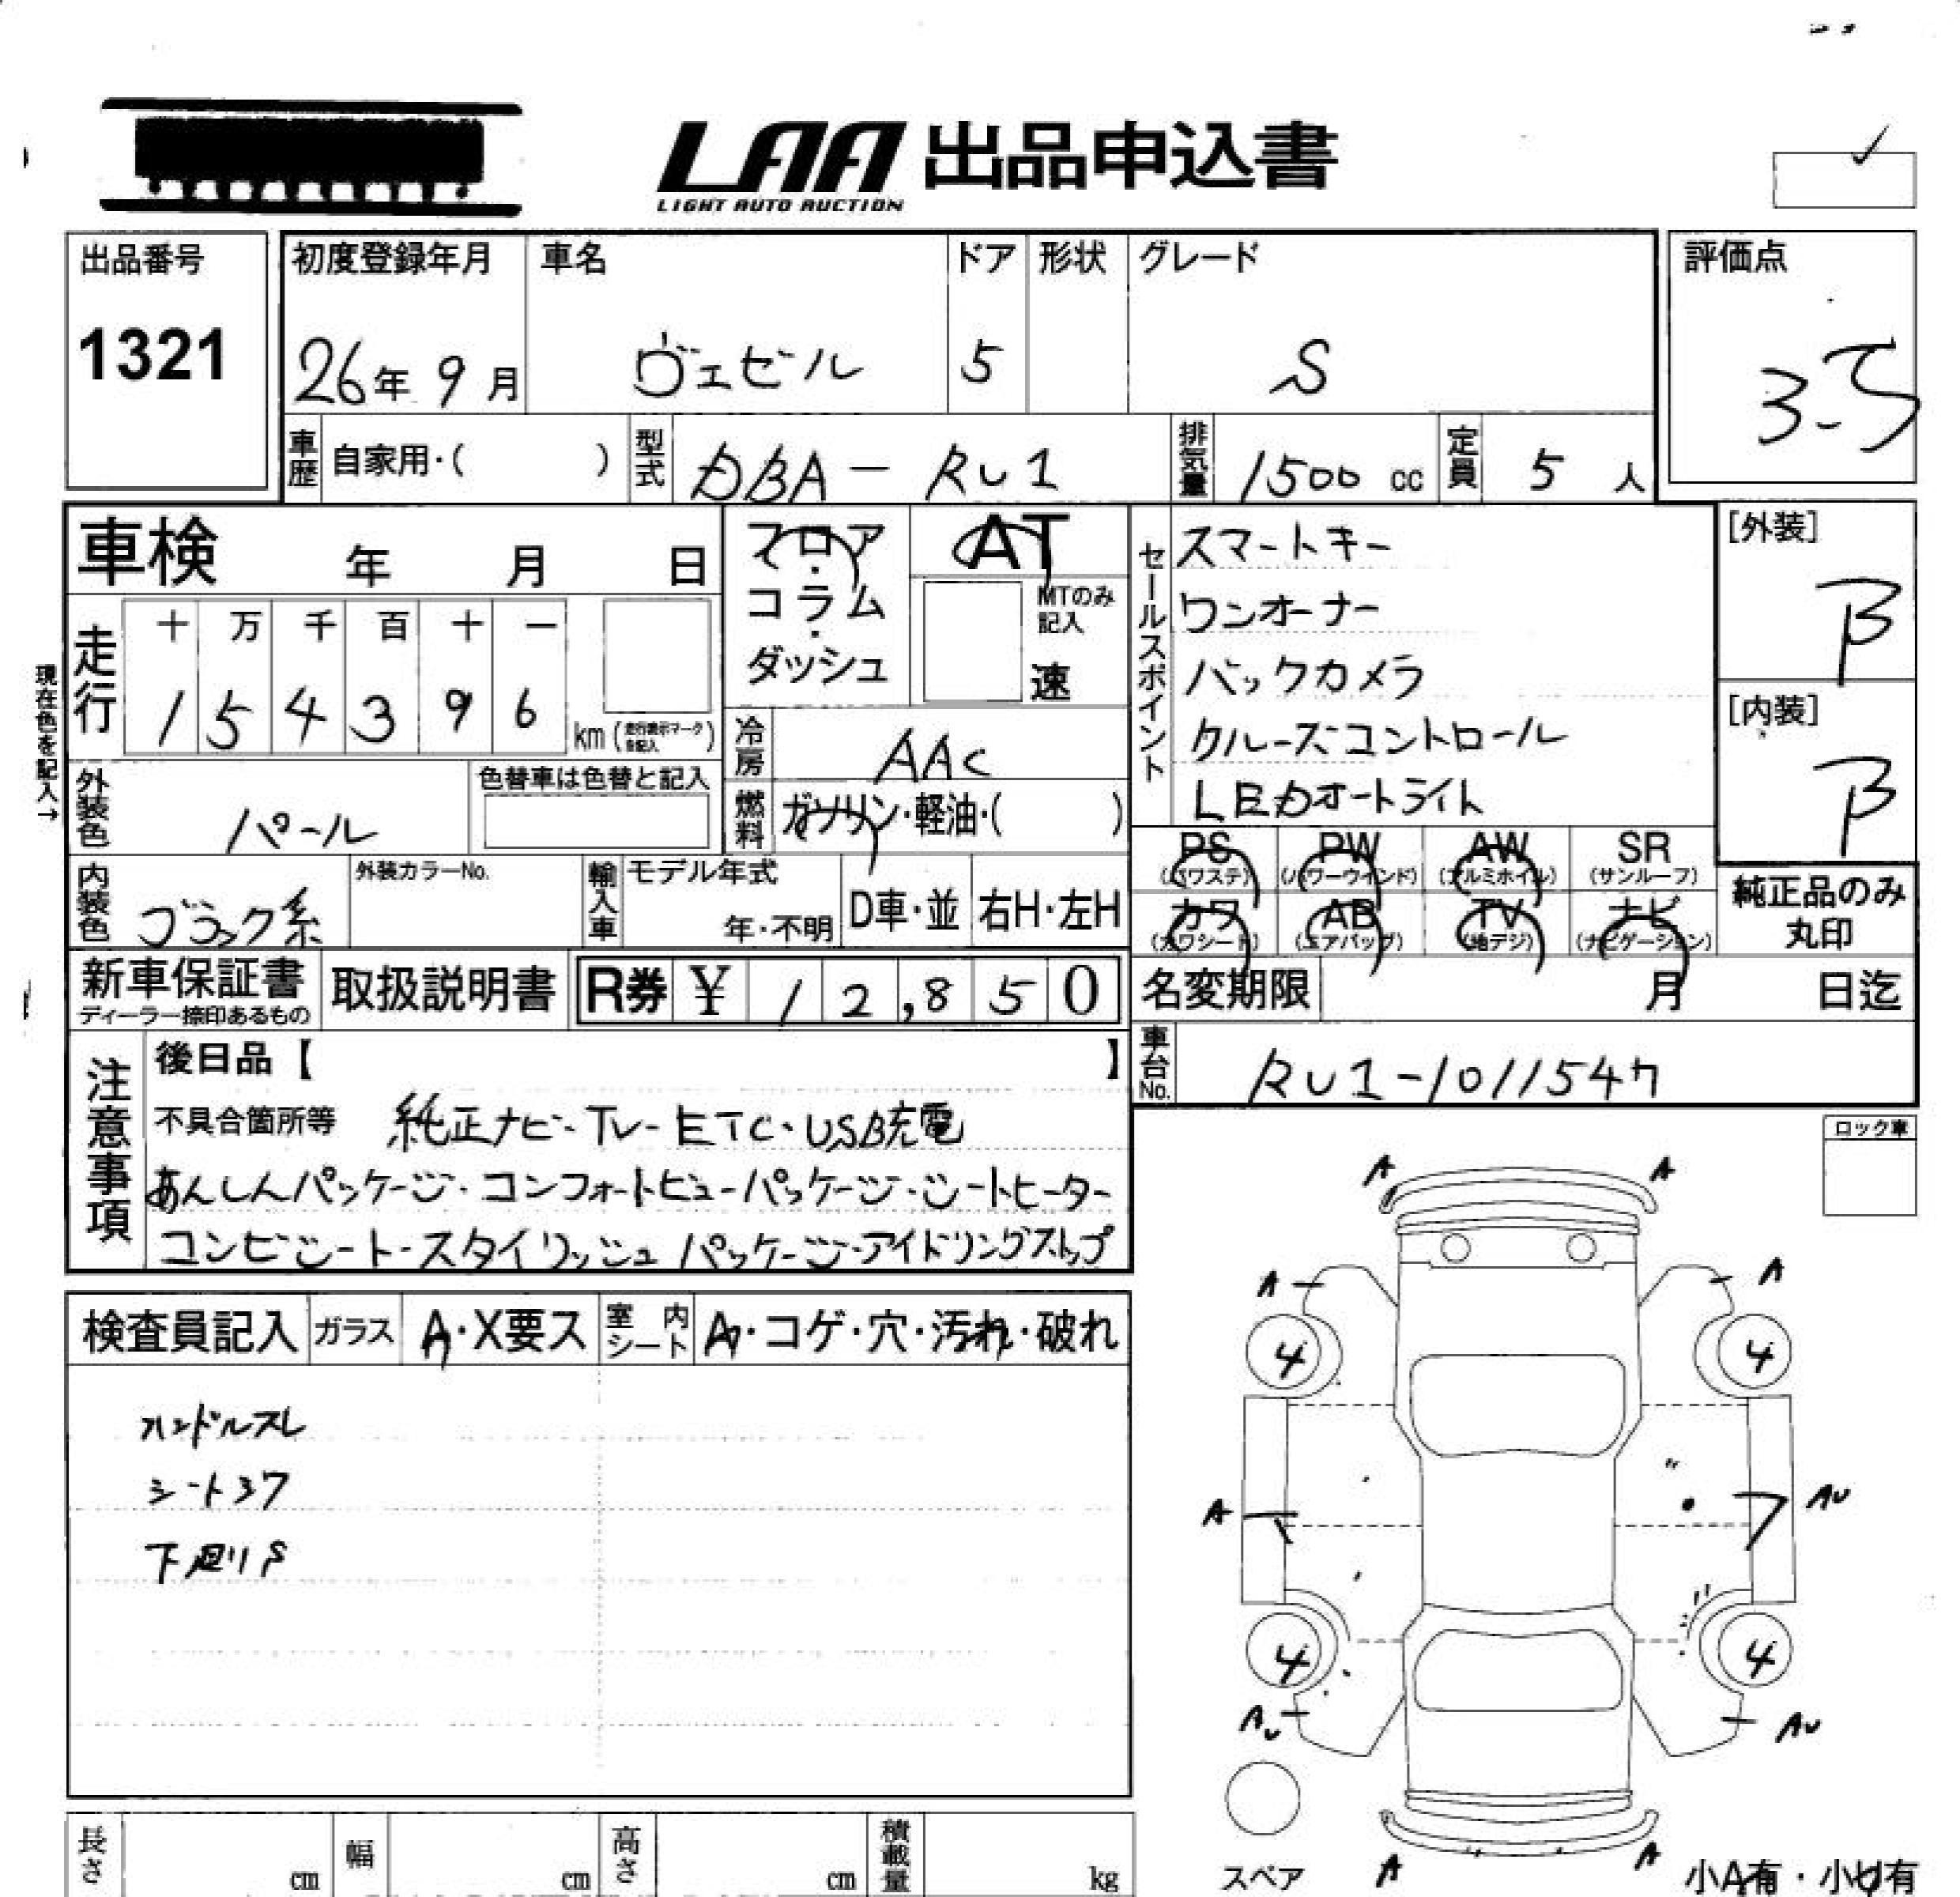 LAA 出品申込書
LIGHT AUTO AUCTION
出品番号
1321
初度登録年月 車名 ドア 形状 グレード
26年 9月 ヴェゼル 5 S
評価点
3.5
車歴 自家用・( ) 型式 DBA-RU1 排気量 1500 cc 定員 5 人
車検 年 月 日
フロア・コラム・ダッシュ
AT
MTのみ記入
速
セールスポイント
スマートキー
ワンオーナー
バックカメラ
クルーズコントロール
LEDオートライト
[外装]
B
[内装]
B
現在色を記入→
走行 十 万 千 百 十 一
1 5 4 3 9 6 km (走行表示マークを記入)
冷房 AAC
燃料 ガソリン・軽油・( )
外装色 パール 色替車は色替と記入
内装色 ブラック系 外装カラーNo. 輸入車 モデル年式 年・不明 D車・並 右H・左H
PS (パワステ) PW (パワーウインド) AW (アルミホイル) SR (サンルーフ)
カワ (カワシート) AB (エアバッグ) TV (地デジ) ナビ (ナビゲーション)
純正品のみ丸印
新車保証書 ディーラー捺印あるもの 取扱説明書 R券 ¥ 12,850
名変期限 月 日迄
車台No. RU1-1011547
注意事項
後日品【 】
不具合箇所等 純正ナビ・TV・ETC・USB充電
あんしんパッケージ・コンフォートビューパッケージ・シートヒーター
コンビシート・スタイリッシュパッケージ・アイドリングストップ
ロック車
検査員記入 ガラス A・X要ス 室内シート A・コゲ・穴・汚れ・破れ
ハンドルスレ
シートヨフ
下廻りS
A A
A A
4 4
A AU
4 4
AU AU
スペア
A A
小A有・小U有
長さ cm 幅 cm 高さ cm 積載量 kg